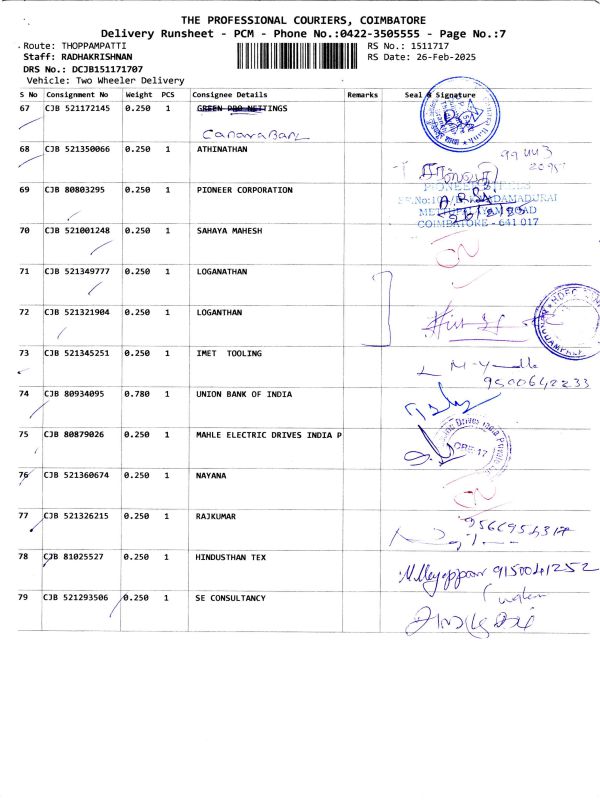 THE PROFESSIONAL COURIERS, COIMBATORE
Delivery Runsheet - PCM - Phone No.:0422-3505555 - Page No.:7
Route: THOPPAMPATTI RS No.: 1511717
Staff: RADHAKRISHNAN RS Date: 26-Feb-2025
DRS No.: DCJB151171707
Vehicle: Two Wheeler Delivery
S No Consignment No Weight PCS Consignee Details Remarks Seal & Signature
67 CJB 521172145 0.250 1 GREEN PRO NETTINGS
Canara Bank
68 CJB 521350066 0.250 1 ATHINATHAN
69 CJB 80803295 0.250 1 PIONEER CORPORATION
COIMBATORE - 641 017
70 CJB 521001248 0.250 1 SAHAYA MAHESH
71 CJB 521349777 0.250 1 LOGANATHAN
72 CJB 521321904 0.250 1 LOGANTHAN
73 CJB 521345251 0.250 1 IMET TOOLING
9500642233
74 CJB 80934095 0.780 1 UNION BANK OF INDIA
75 CJB 80879026 0.250 1 MAHLE ELECTRIC DRIVES INDIA P
76 CJB 521360674 0.250 1 NAYANA
77 CJB 521326215 0.250 1 RAJKUMAR
78 CJB 81025527 0.250 1 HINDUSTHAN TEX
M.Meyappan 9150041252
79 CJB 521293506 0.250 1 SE CONSULTANCY